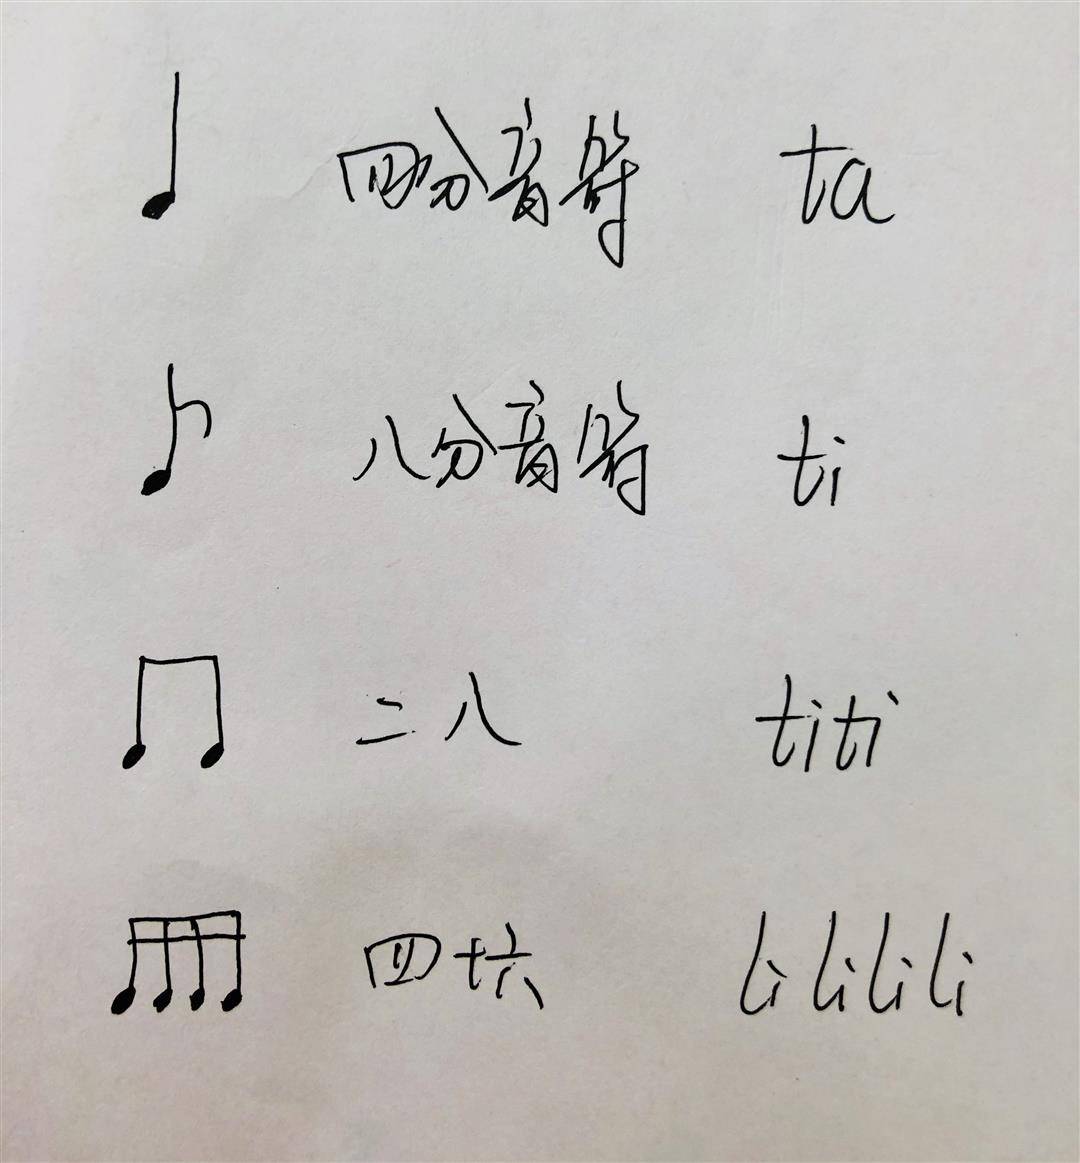 四分音符 ta
八分音符 ti
二八 titi
四十六 li li li li